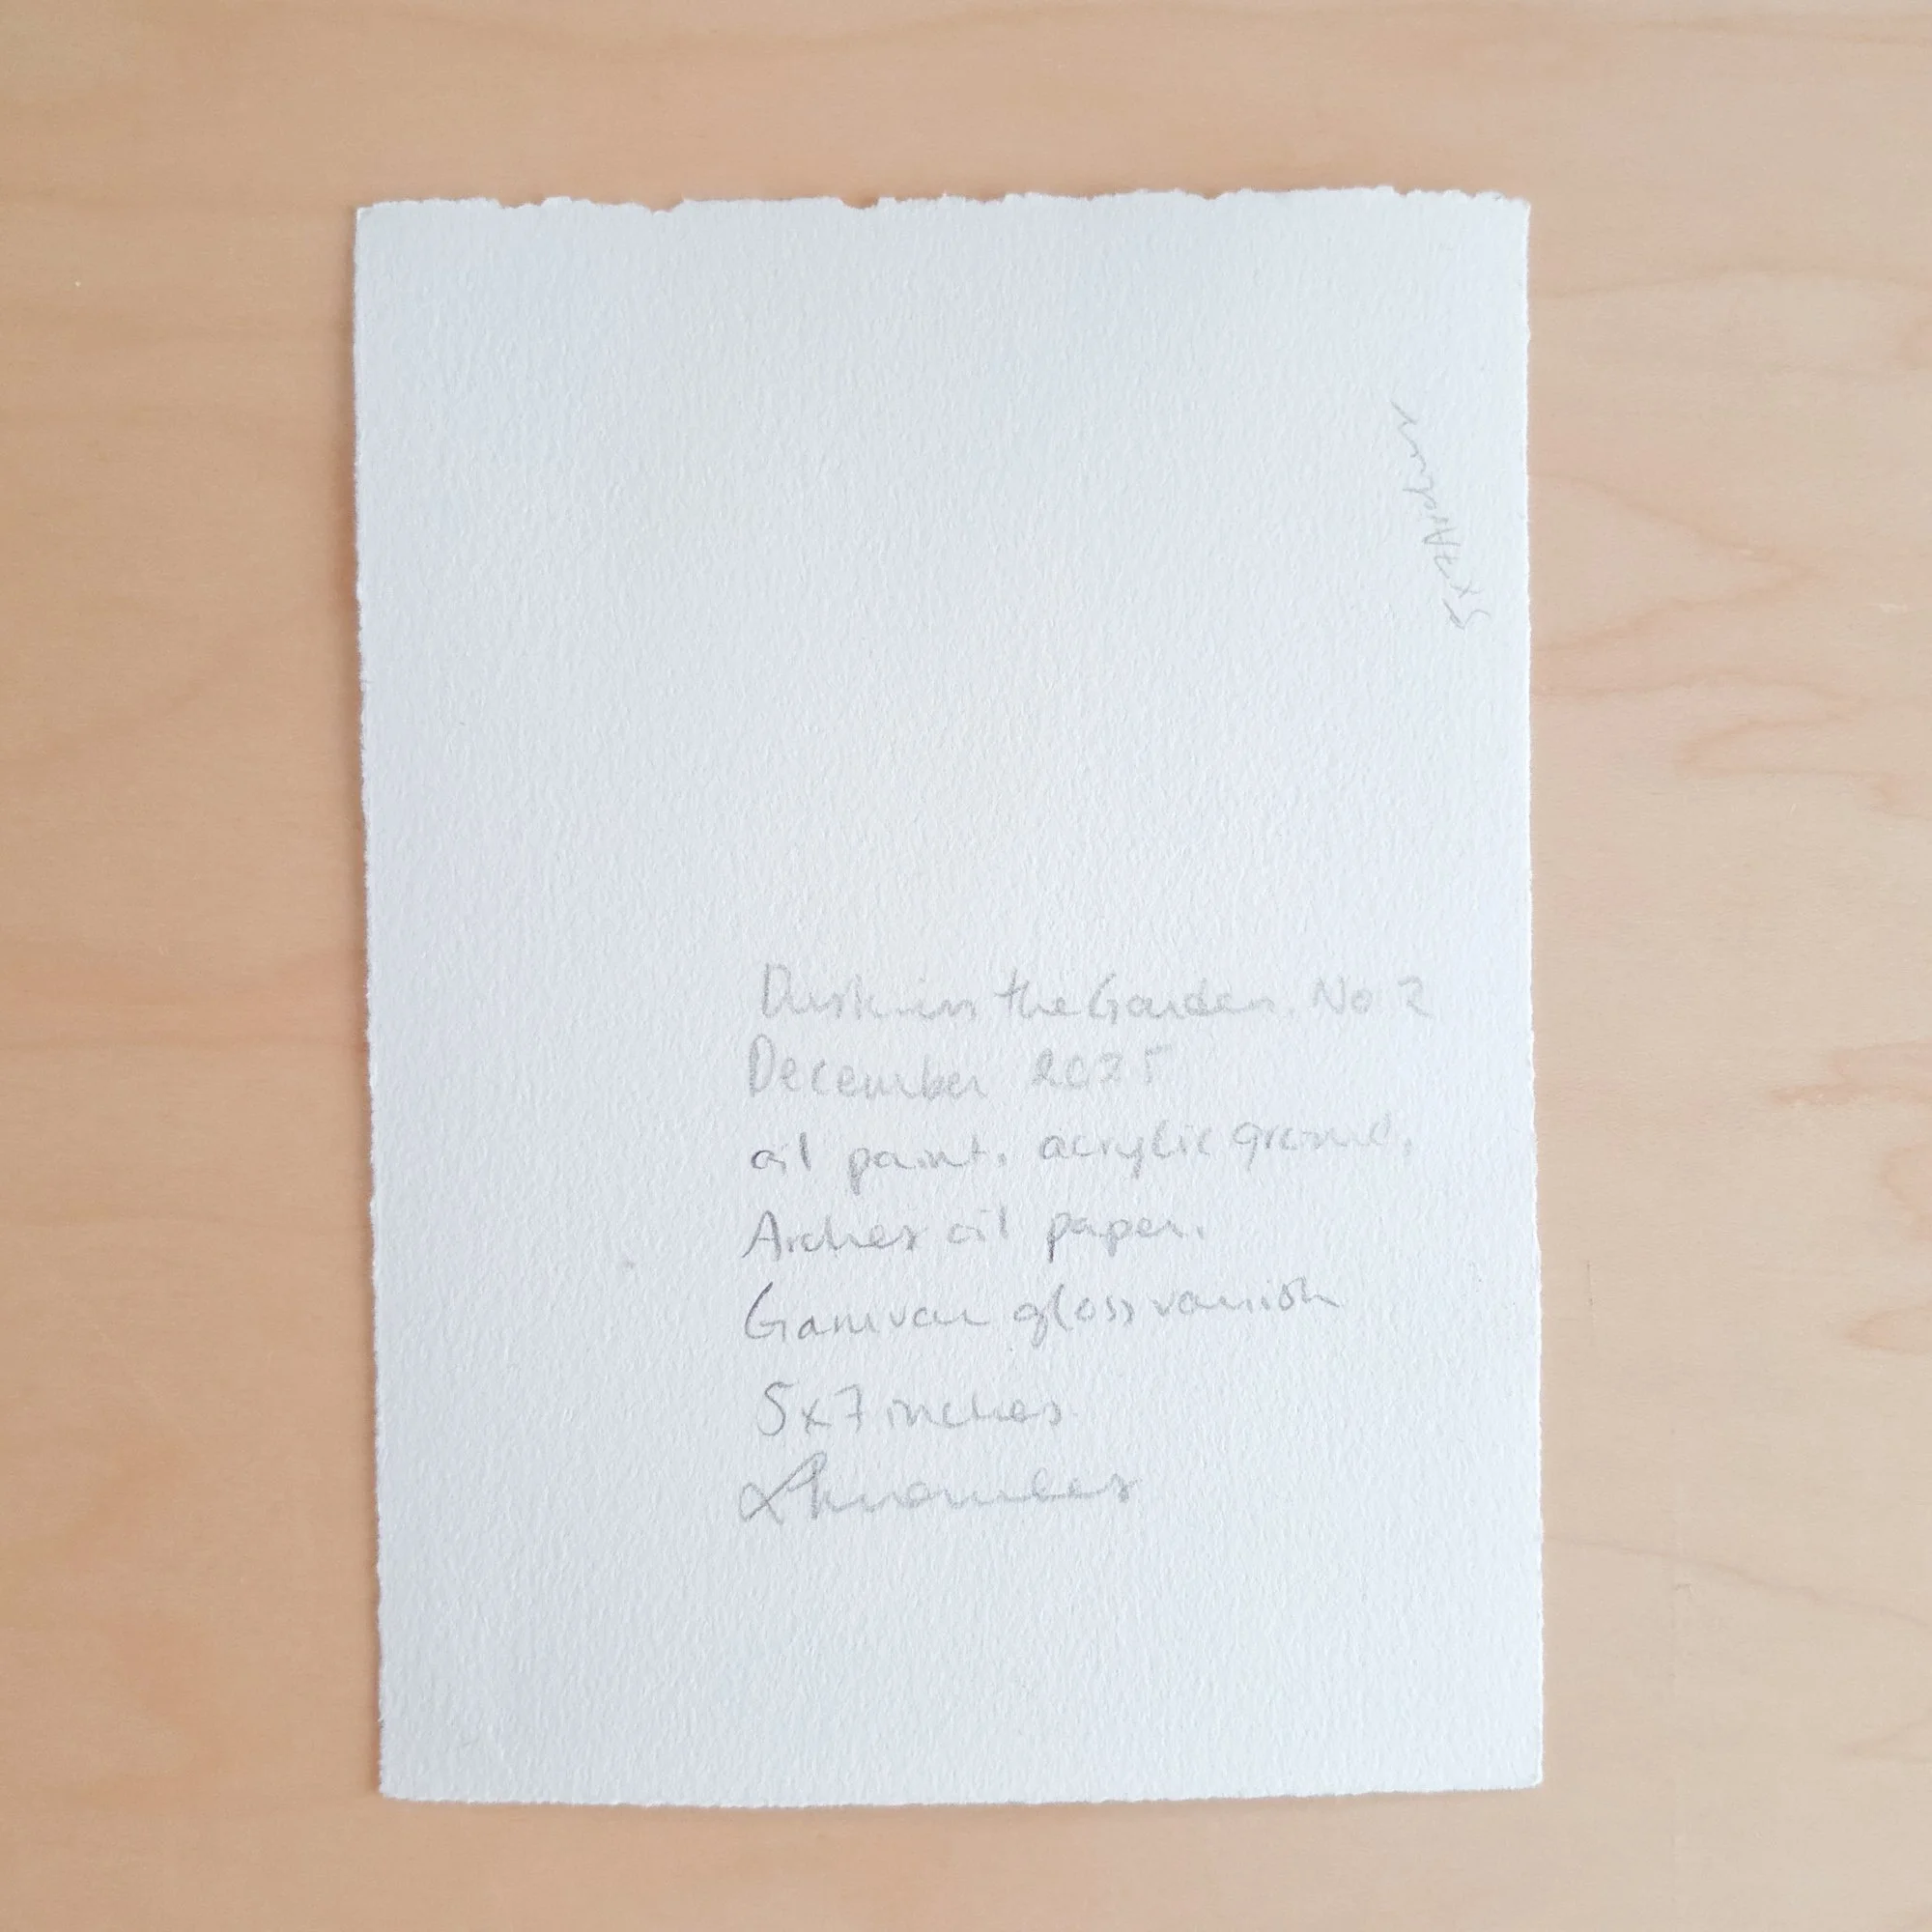 Dusk in the Garden. No 2
December 2025
oil paint, acrylic ground,
Arches oil paper.
Gamvar gloss varnish
5x7 inches
5x7